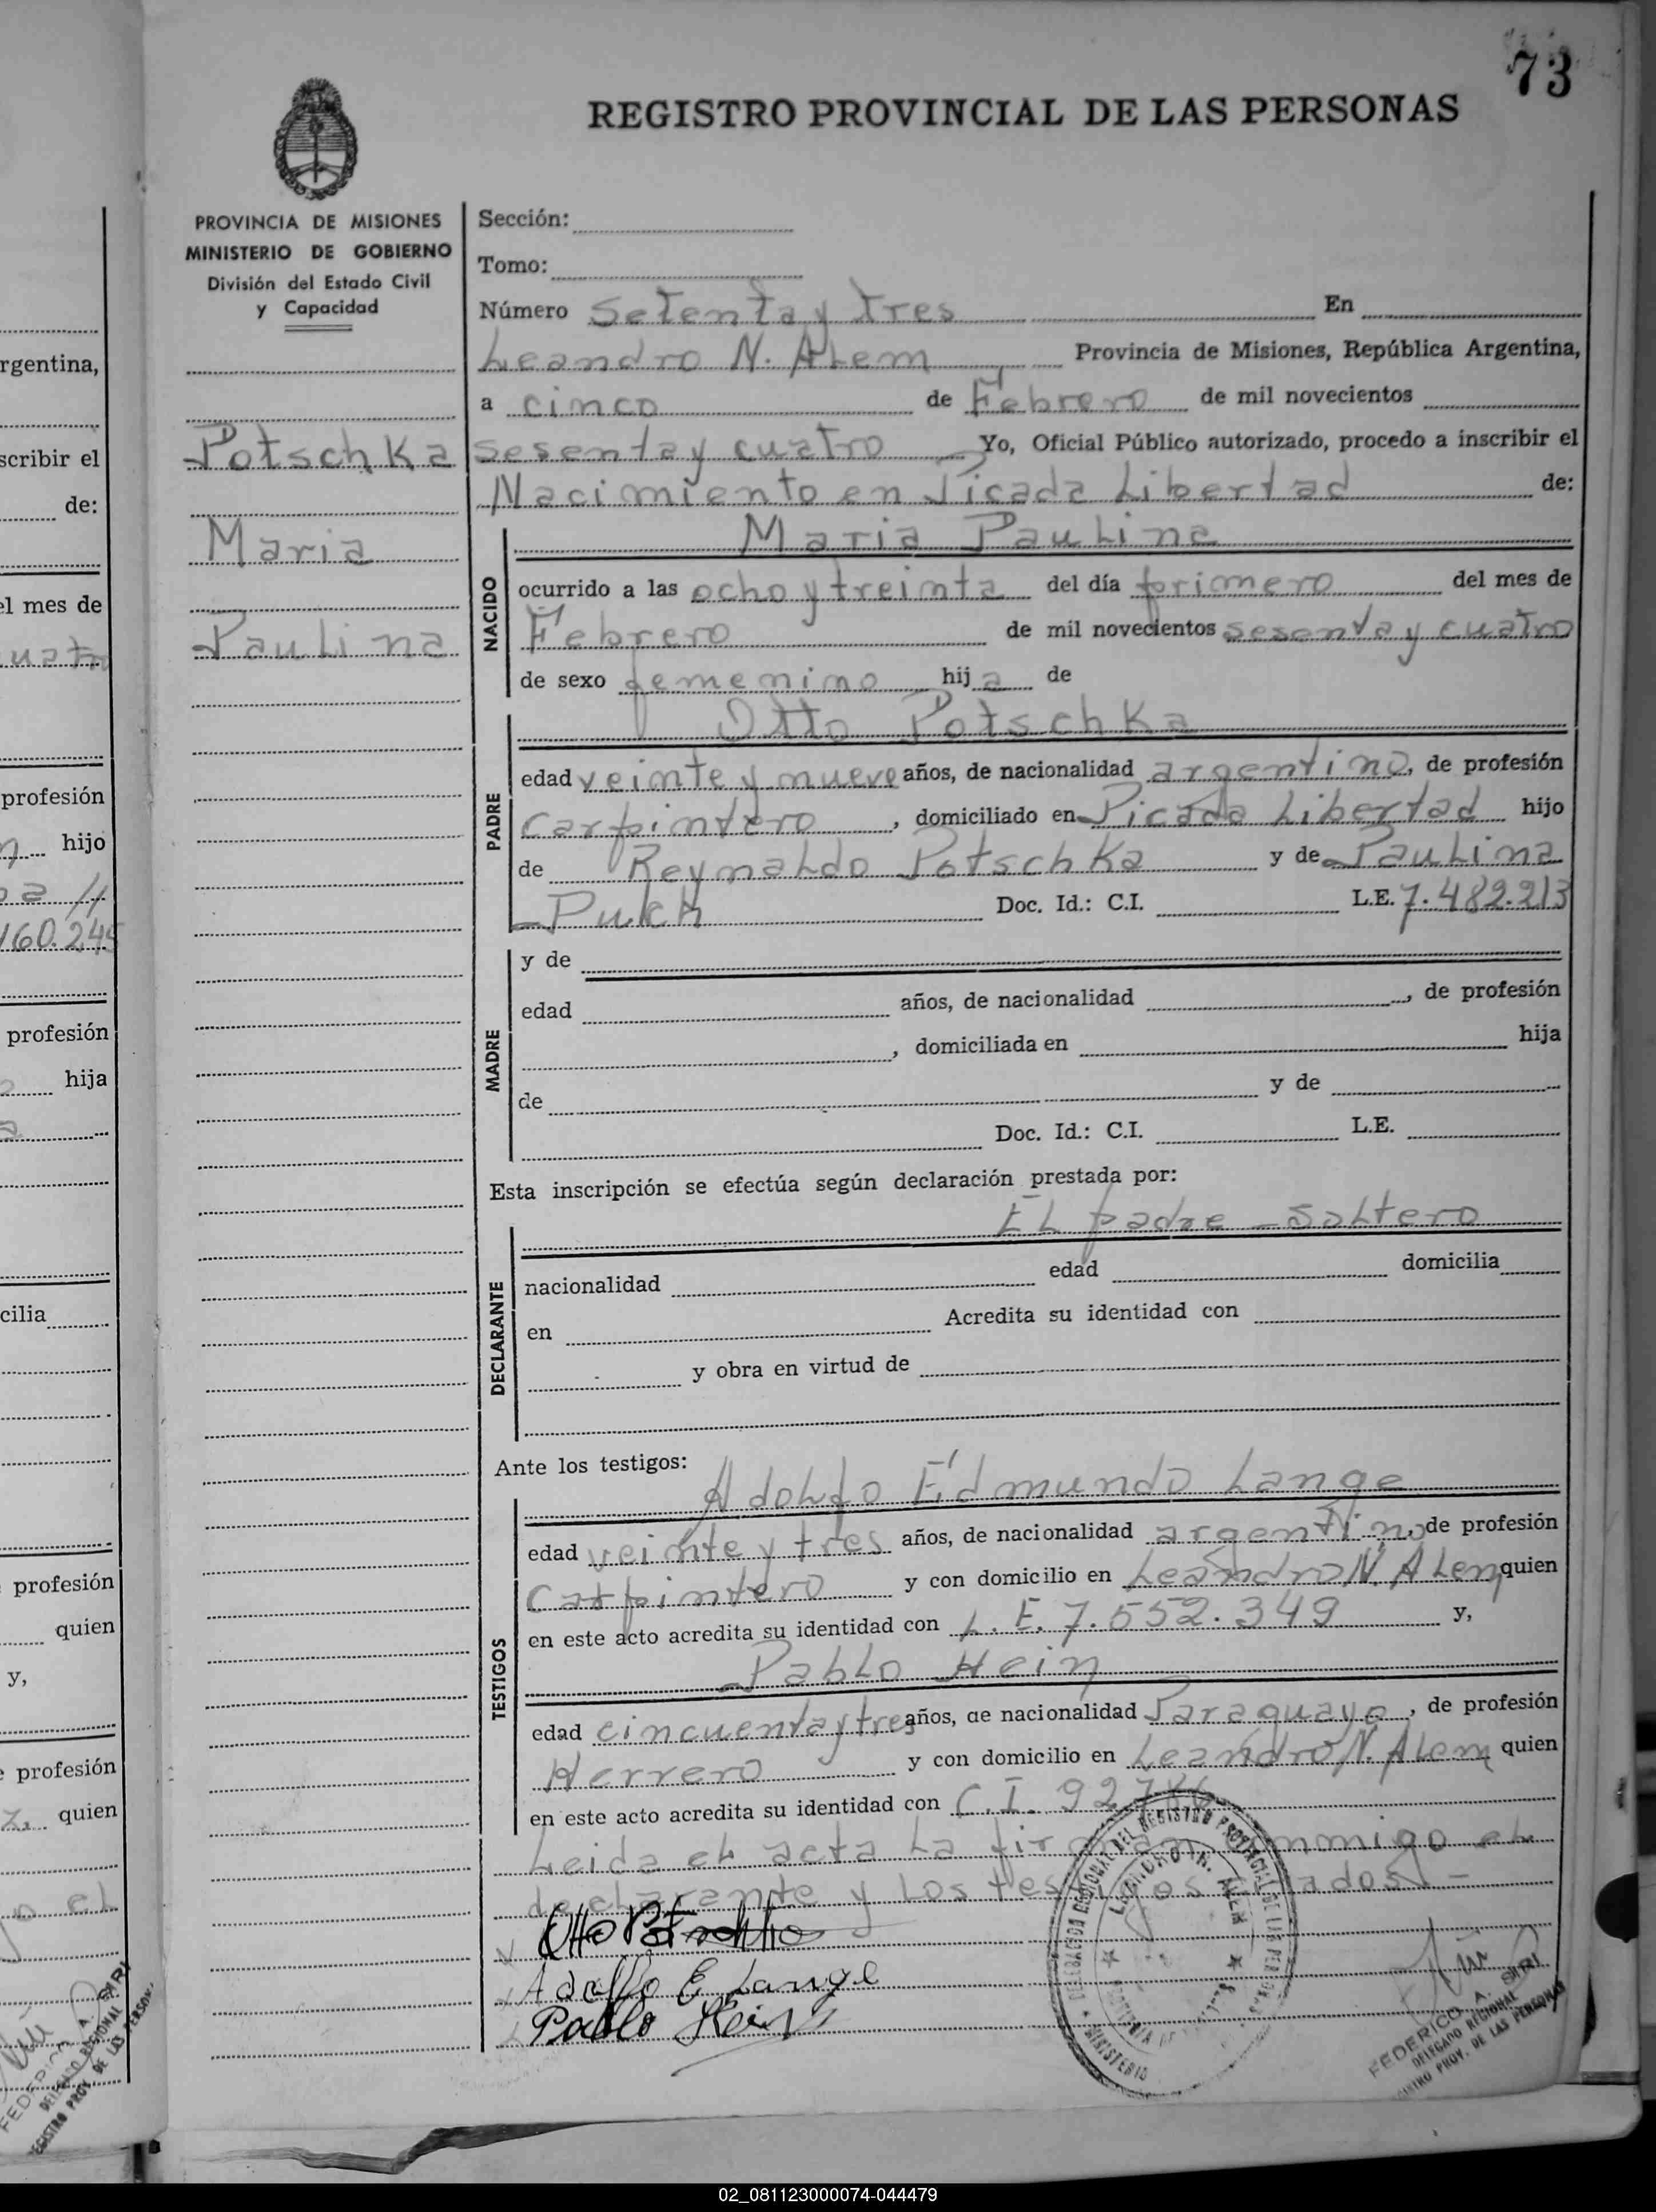 73
REGISTRO PROVINCIAL DE LAS PERSONAS
PROVINCIA DE MISIONES
MINISTERIO DE GOBIERNO
División del Estado Civil
y Capacidad
Potschka
Maria
Paulina
Sección:
Tomo:
Número Setenta y tres En
Leandro N. Alem Provincia de Misiones, República Argentina,
a cinco de Febrero de mil novecientos
sesenta y cuatro Yo, Oficial Público autorizado, procedo a inscribir el
Nacimiento en Picada Libertad de:
NACIDO
Maria Paulina
ocurrido a las ocho y treinta del día primero del mes de
Febrero de mil novecientos sesenta y cuatro
de sexo femenino hija de
PADRE
Otto Potschka
edad veinte y nueve años, de nacionalidad argentino, de profesión
Carpintero, domiciliado en Picada Libertad hijo
de Reynaldo Potschka y de Paulina
Doc. Id.: C.I. L.E. 7.482.213
MADRE
y de
edad años, de nacionalidad , de profesión
, domiciliada en hija
de y de
Doc. Id.: C.I. L.E.
Esta inscripción se efectúa según declaración prestada por:
El padre - Soltero
DECLARANTE
nacionalidad edad domicilia
en Acredita su identidad con
y obra en virtud de
Ante los testigos:
TESTIGOS
Adolfo Edmundo Lange
edad veinte y tres años, de nacionalidad argentino, de profesión
Carpintero y con domicilio en Leandro N. Alem, quien
en este acto acredita su identidad con L.E. 7.552.349 y,
Pablo Hein
edad cincuenta y tres años, de nacionalidad Paraguayo, de profesión
Herrero y con domicilio en Leandro N. Alem quien
en este acto acredita su identidad con C.I.
Leida el acta la firman conmigo el
declarante y los testigos citados -
Otto
Adolfo E. Lange
Pablo Hein
FEDERICO A. SIRI
DELEGADO REGIONAL
PROV. DE LAS PERSONAS
02_081123000074-044479